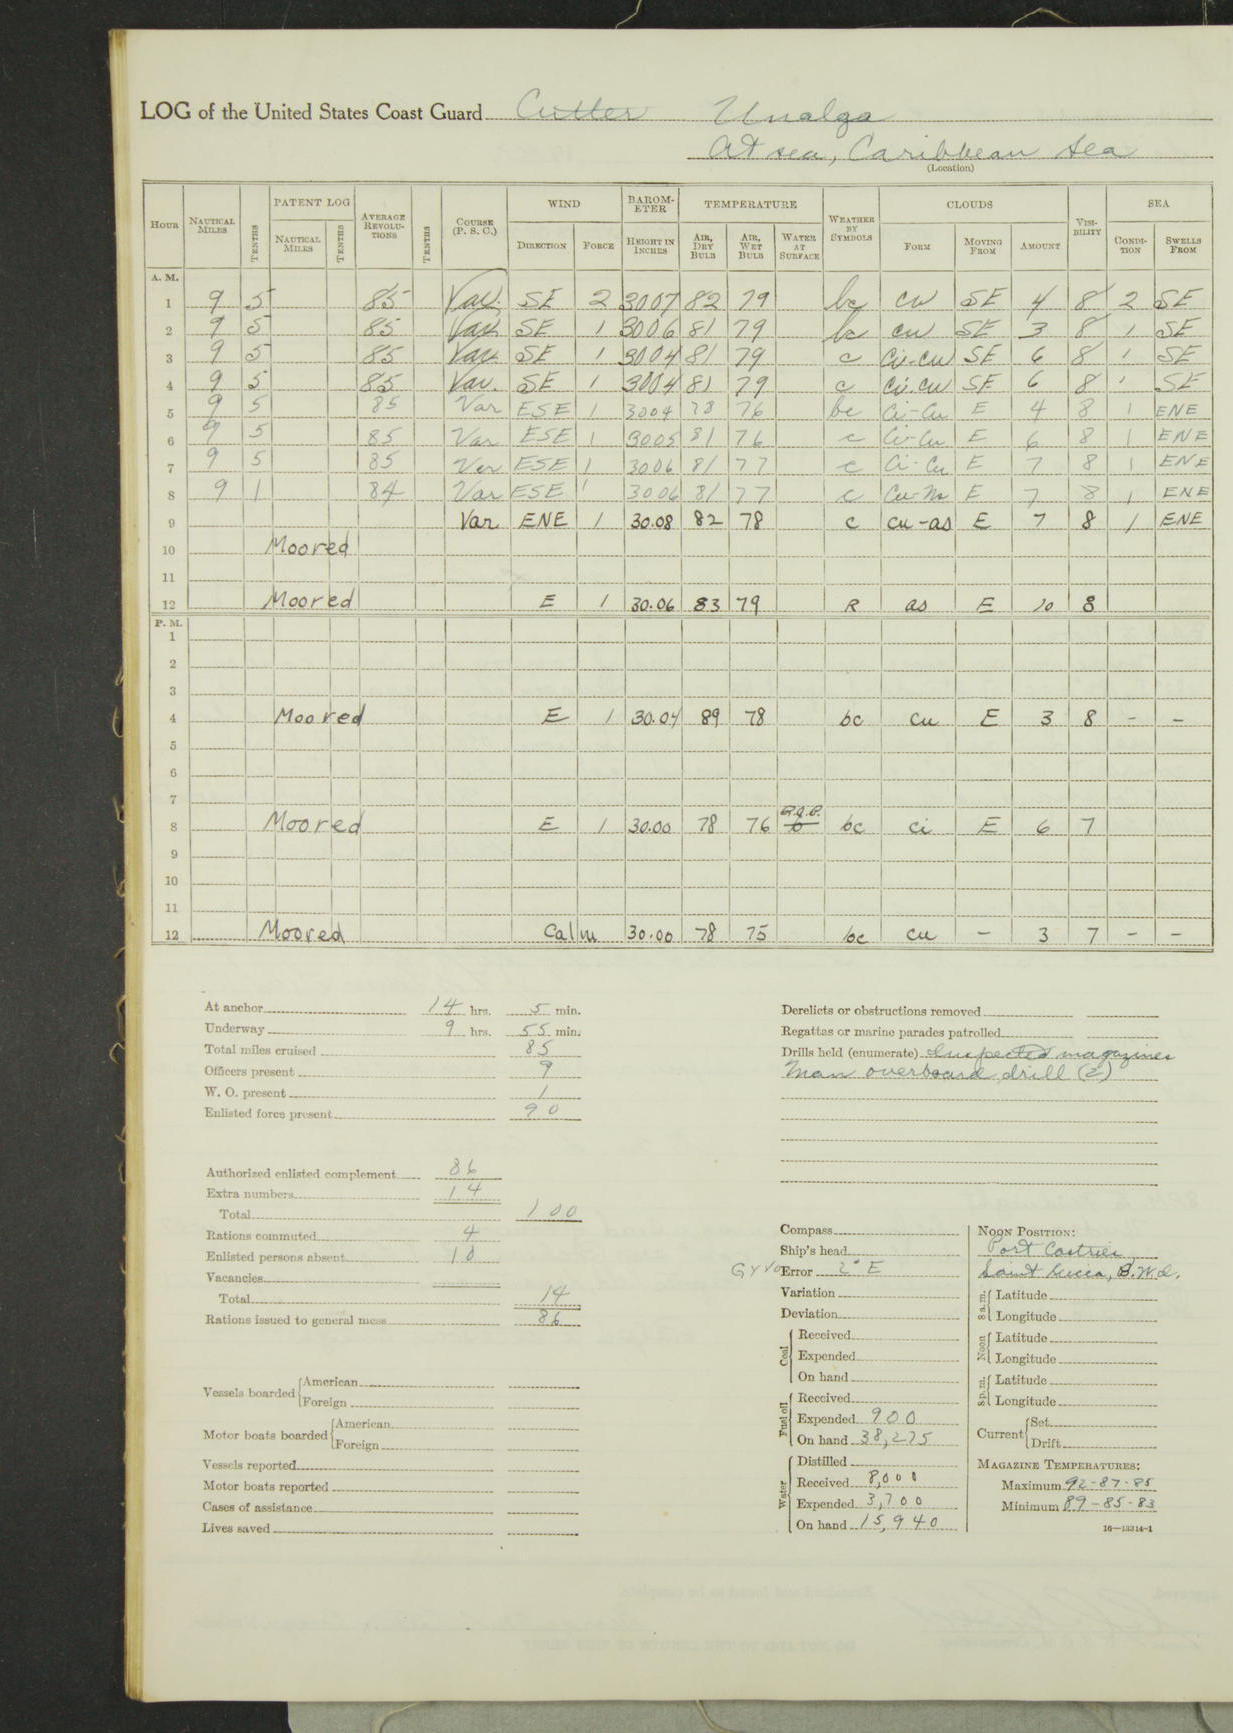 LOG of the United States Coast Guard Cutter Unalga
At sea, Caribbean Sea
(Location)
HOUR NAUTICAL MILES TENTHS PATENT LOG NAUTICAL MILES TENTHS AVERAGE REVOLUTIONS TENTHS COURSE (P. S. C.) WIND DIRECTION FORCE BAROMETER HEIGHT IN INCHES TEMPERATURE AIR, DRY BULB AIR, WET BULB WATER AT SURFACE WEATHER BY SYMBOLS CLOUDS FORM MOVING FROM AMOUNT VISIBILITY SEA CONDITION SWELLS FROM
A. M.
1 9 5 85 Var. SE 2 3007 82 79 bc cu SE 4 8 2 SE
2 9 5 85 Var SE 1 3006 81 79 bc cu SE 3 8 1 SE
3 9 5 85 Var. SE 1 3004 81 79 c Ci-cu SE 6 8 1 SE
4 9 5 85 Var. SE 1 3004 81 79 c Ci-cu SE 6 8 1 SE
5 9 5 85 Var ESE 1 3004 78 76 bc Ci-Cu E 4 8 1 ENE
6 9 5 85 Var ESE 1 3005 81 76 c Ci-Cu E 6 8 1 ENE
7 9 5 85 Var ESE 1 3006 81 77 c Ci-Cu E 7 8 1 ENE
8 9 1 84 Var ESE 1 3006 81 77 c Cu-N E 7 8 1 ENE
9 Var ENE 1 30.08 82 78 c cu-as E 7 8 1 ENE
10 Moored
11
12 Moored E 1 30.06 83 79 R as E 10 8
P. M.
1
2
3
4 Moored E 1 30.04 89 78 bc cu E 3 8 - -
5
6
7
8 Moored E 1 30.00 78 76 b bc ci E 6 7
9
10
11
12 Moored Calm 30.00 78 75 bc cu - 3 7 - -
At anchor 14 hrs. 5 min.
Underway 9 hrs. 55 min.
Total miles cruised 85
Officers present 9
W. O. present 1
Enlisted force present 90
Authorized enlisted complement 86
Extra numbers 14
Total 100
Rations commuted 4
Enlisted persons absent 10
Vacancies
Total 14
Rations issued to general mess 86
Vessels boarded American
Foreign
Motor boats boarded American
Foreign
Vessels reported
Motor boats reported
Cases of assistance
Lives saved
Derelicts or obstructions removed
Regattas or marine parades patrolled
Drills held (enumerate) Inspected magazines
Man overboard drill (2)
Compass
Ship's head
Gyro Error 2° E
Variation
Deviation
Coal Received
Expended
On hand
Fuel oil Received
Expended 900
On hand 38,275
Water Distilled
Received 8,000
Expended 3,700
On hand 15,940
NOON POSITION:
Port Castries,
Saint Lucia, B.W.I.
8 a. m. Latitude
Longitude
Noon Latitude
Longitude
8 p. m. Latitude
Longitude
Current Set
Drift
MAGAZINE TEMPERATURES:
Maximum 92-87-85
Minimum 89-85-83
16—13314-1